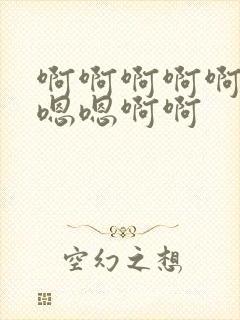 啊啊啊啊啊
嗯嗯啊啊
空幻之想